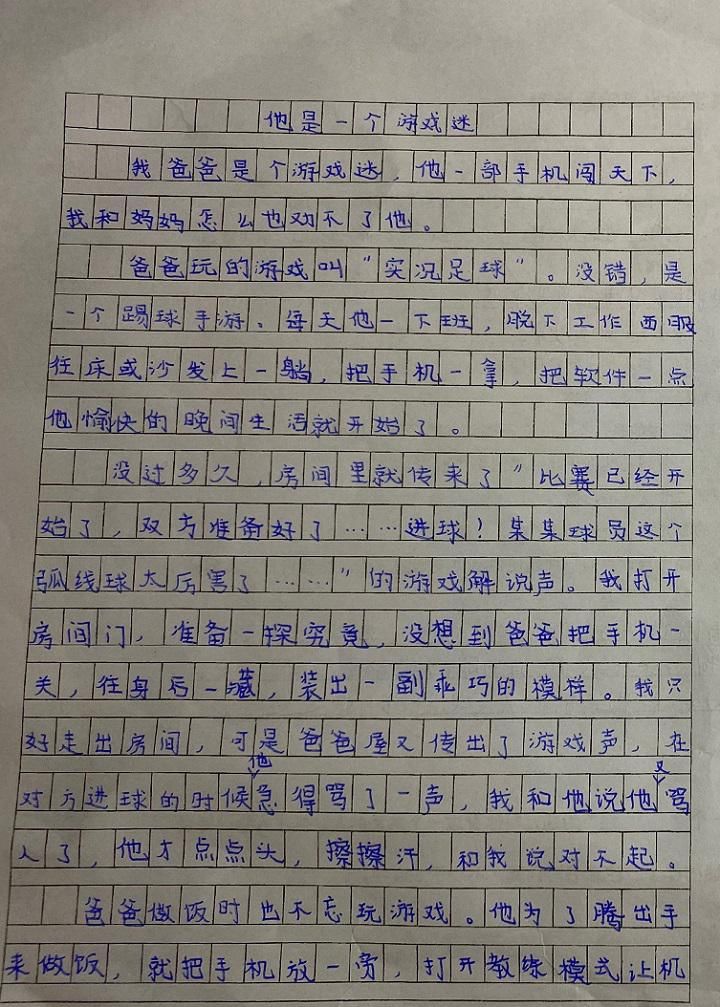 他是一个游戏迷
我爸爸是个游戏迷，他一部手机闯天下，
我和妈妈怎么也劝不了他。
爸爸玩的游戏叫“实况足球”。没错，是
一个踢球手游。每天他一下班，脱下工作西服
往床或沙发上一躺，把手机一拿，把软件一点
他愉快的晚间生活就开始了。
没过多久，房间里就传来了“比赛已经开
始了，双方准备好了……进球！某某球员这个
弧线球太厉害了……”的游戏解说声。我打开
房间门，准备一探究竟，没想到爸爸把手机一
关，往身后一藏，装出一副乖巧的模样。我只
好走出房间，可是爸爸屋又传出了游戏声，在
对方进球的时候他急得骂了一声，我和他说他又骂
人了，他才点点头，擦擦汗，和我说对不起。
爸爸做饭时也不忘玩游戏。他为了腾出手
来做饭，就把手机放一旁，打开教练模式让机